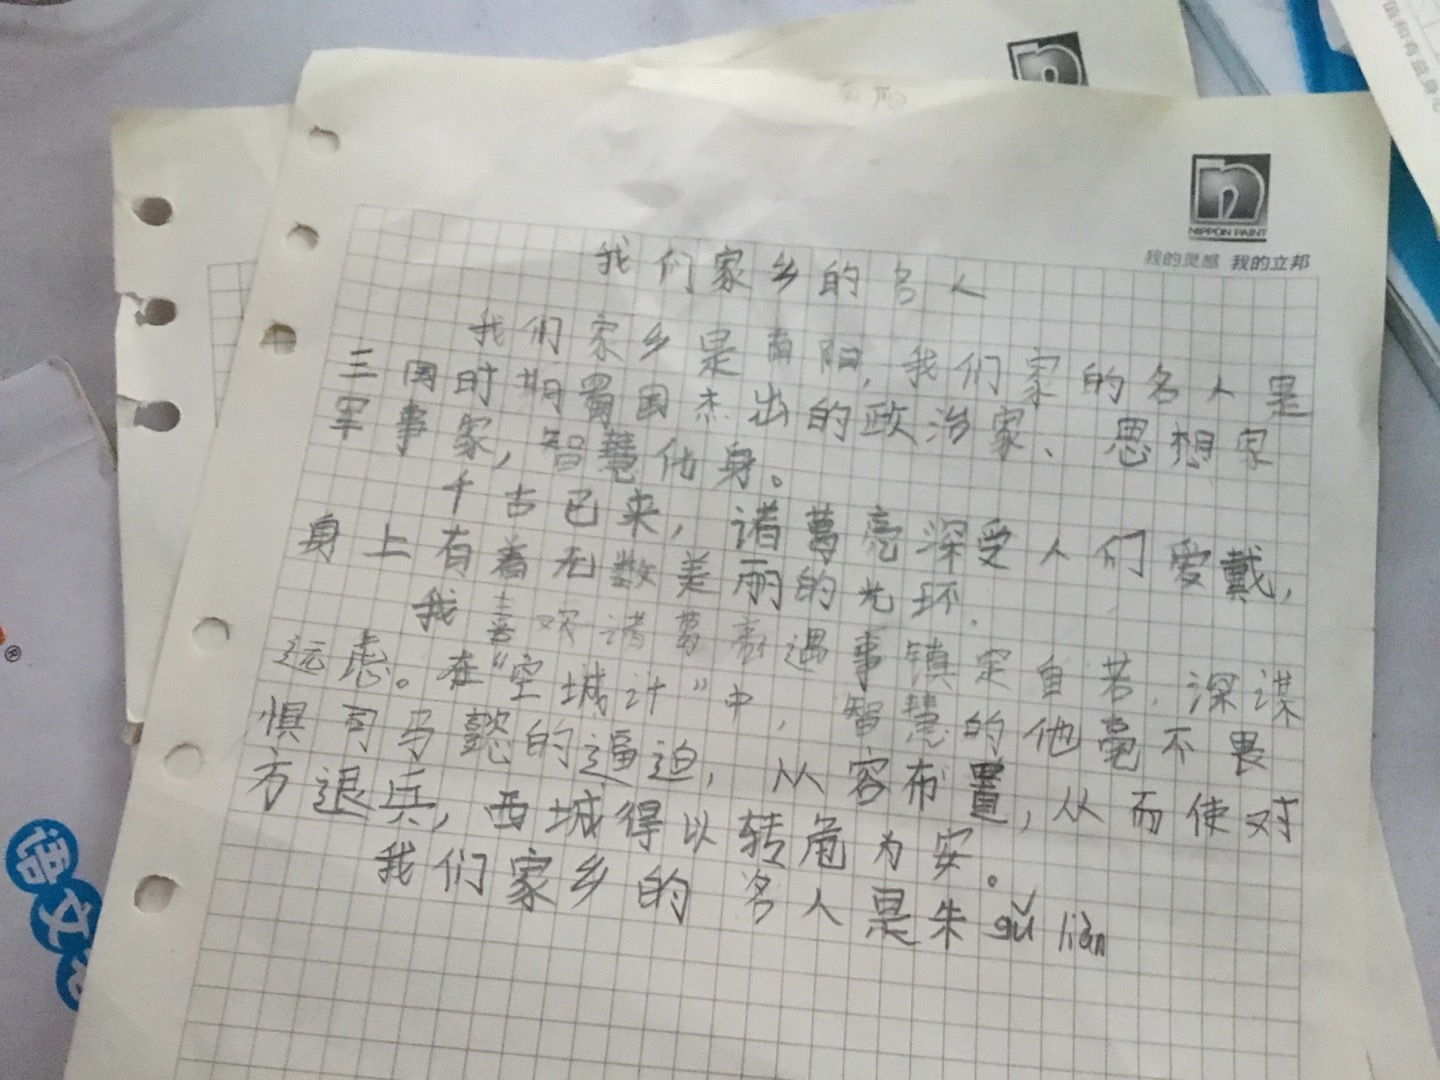 NIPPON PAINT
我的灵感 我的立邦
我们家乡的名人
我们家乡是南阳,我们家的名人是
三国时期蜀国杰出的政治家、思想家
军事家,智慧化身。
千古已来,诸葛亮深受人们爱戴,
身上有着无数美丽的光环.
我喜欢诸葛亮遇事镇定自若,深谋
远虑。在“空城计”中,智慧的他毫不畏
惧司马懿的逼迫,从容布置,从而使对
方退兵,西城得以转危为安。
我们家乡的名人是朱gǔ liàn
语文
®